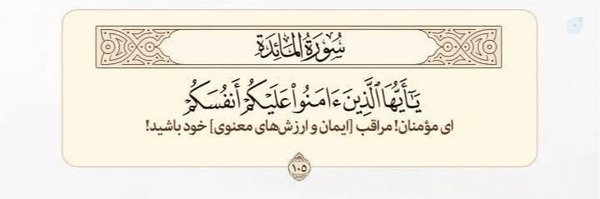 سُورَةُ المَائِدَة
يَـٰٓأَيُّهَا ٱلَّذِينَ ءَامَنُوا۟ عَلَيْكُمْ أَنفُسَكُمْ
ای مؤمنان! مراقب [ایمان و ارزش‌های معنوی] خود باشید!
۱۰۵